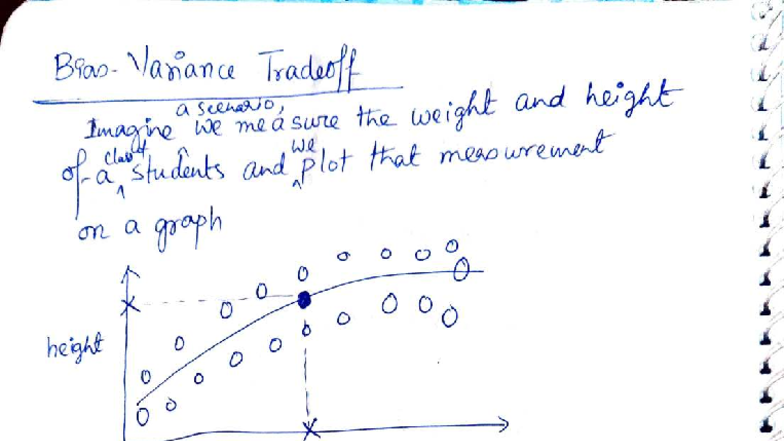 Bias-Variance Tradeoff
Imagine a scenario, we measure the weight and height
of a class of students and we plot that measurement
on a graph
height